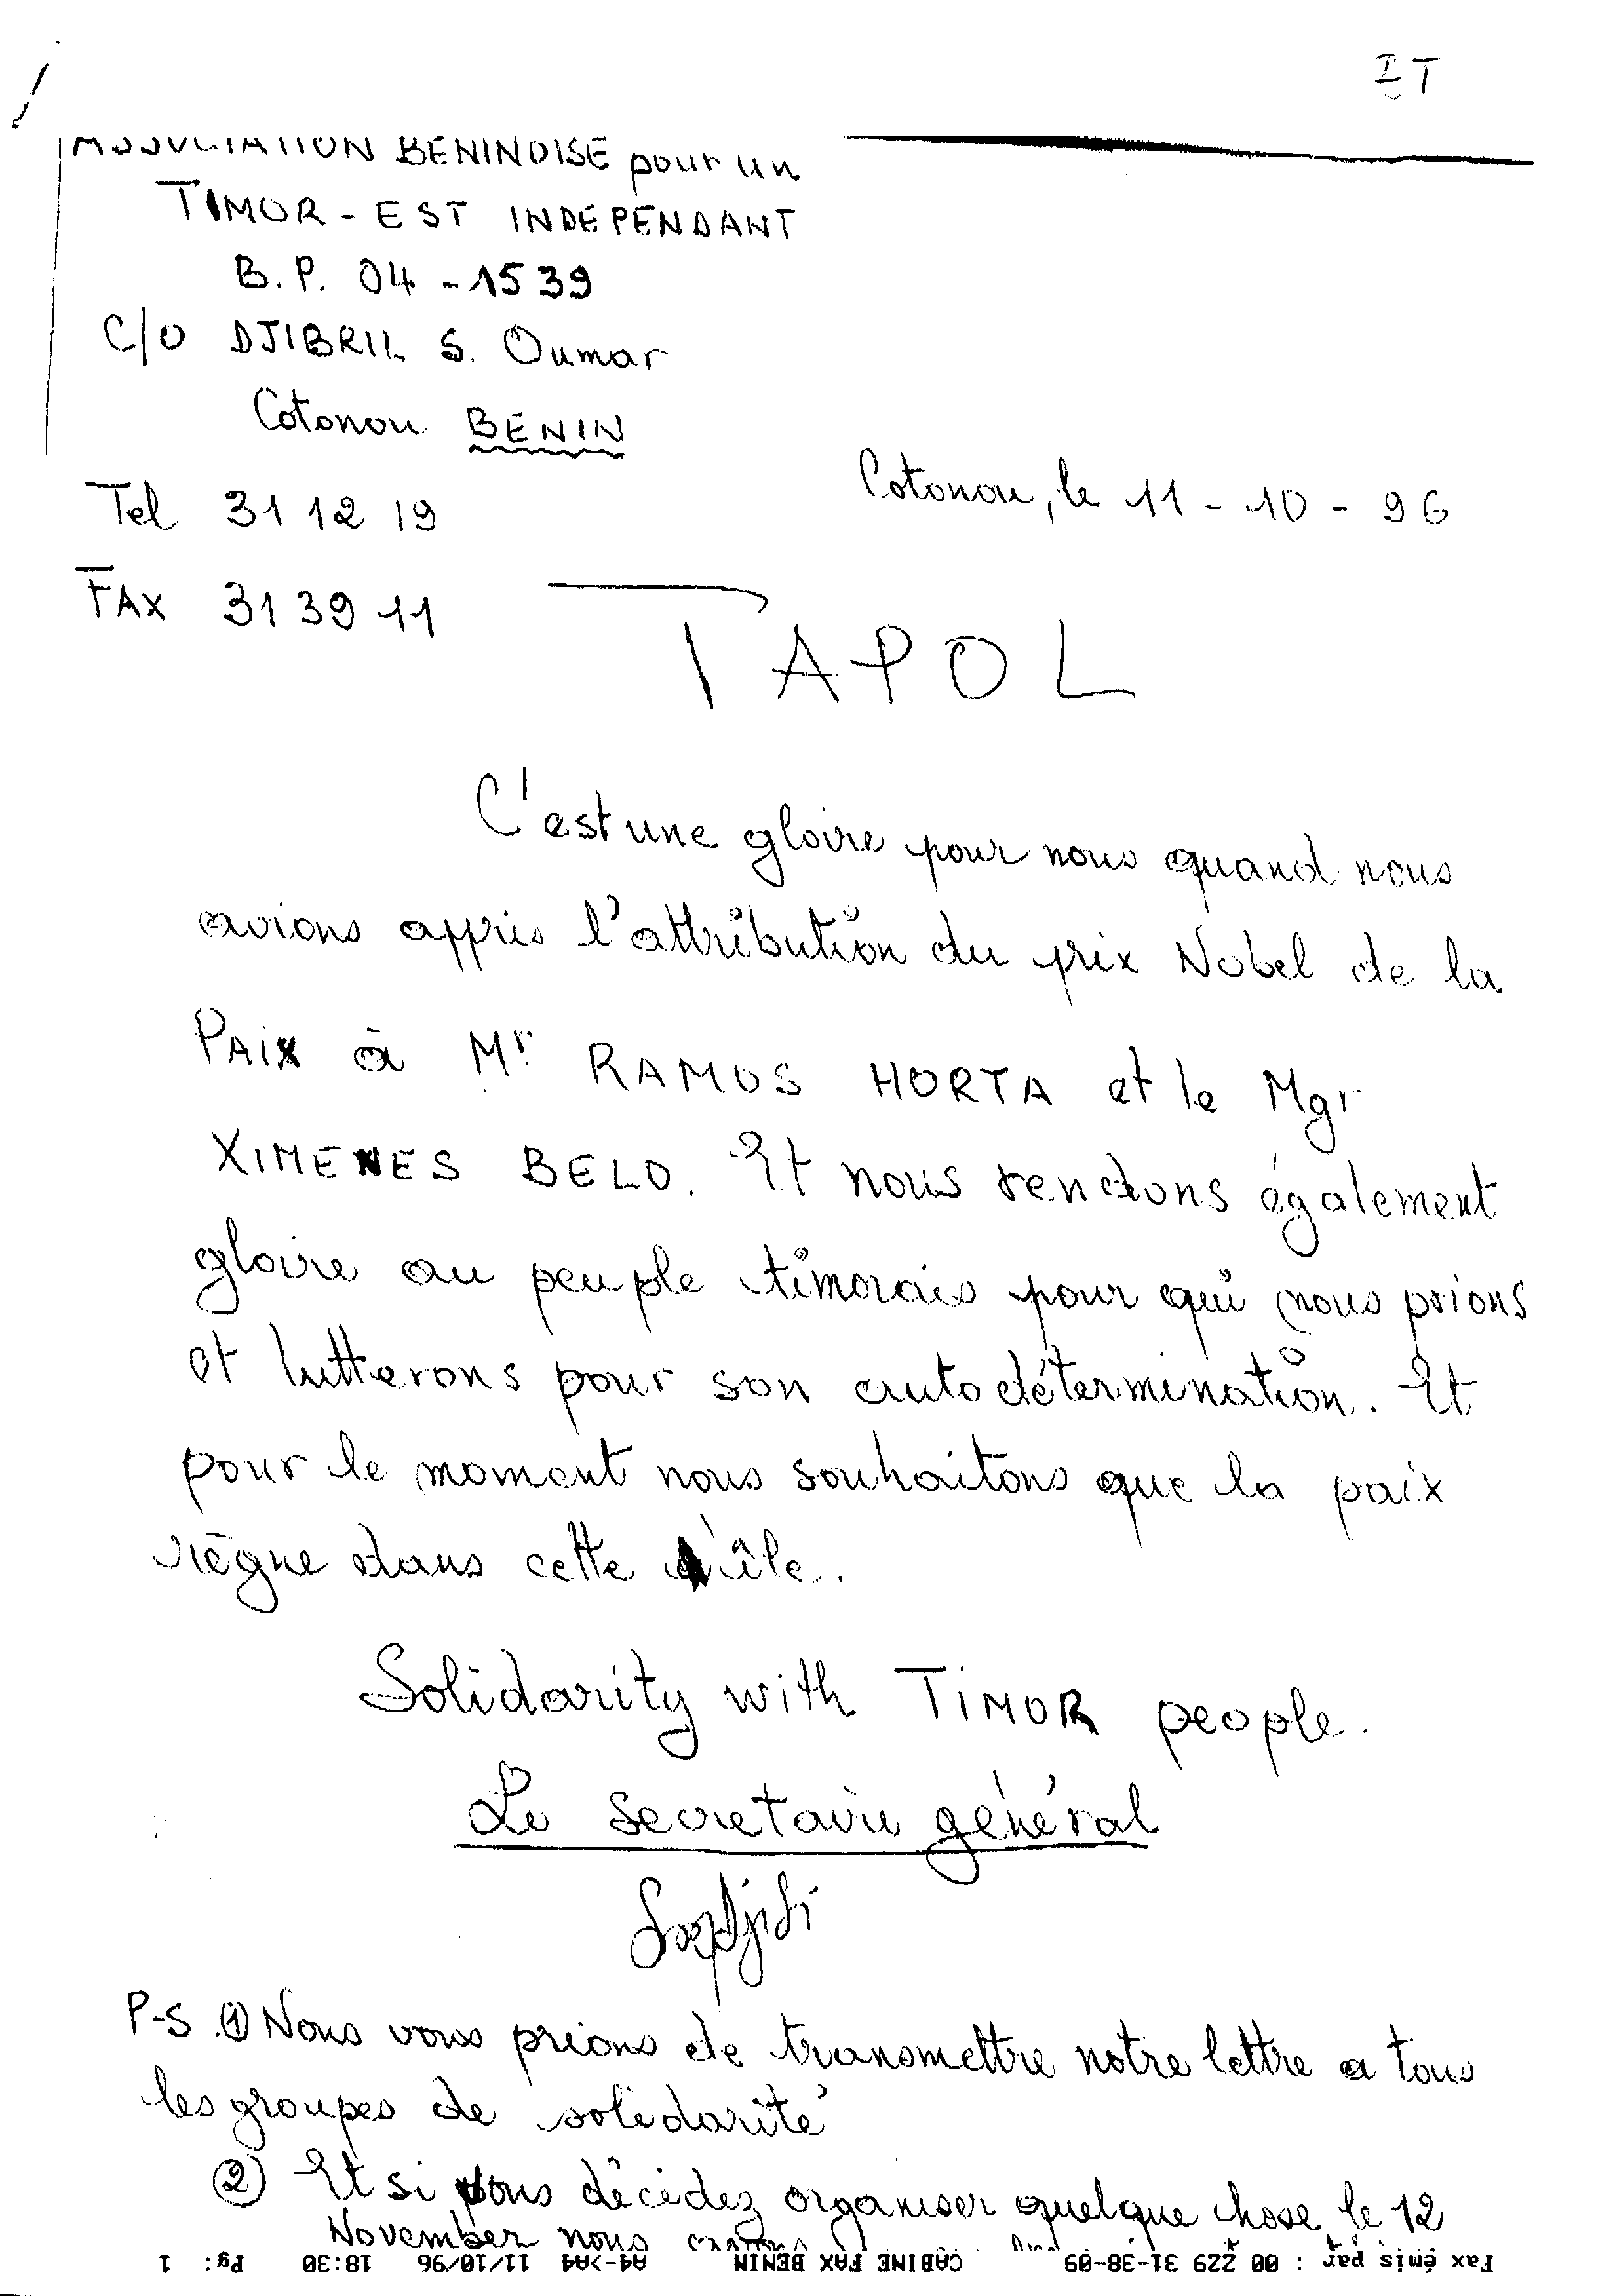 ET
ASSOCIATION BENINOISE pour un
TIMOR-EST INDÉPENDANT
B.P. 04-1539
C/O DJIBRIL S. Oumar
Cotonou BENIN
Tel 31 12 19
Cotonou, le 11-10-96
FAX 31 39 11
TAPOL
C'est une gloire pour nous quand nous
avions appris l'attribution du prix Nobel de la
PAIX à Mr RAMOS HORTA et le Mgr
XIMENES BELO. Et nous rendons également
gloire au peuple timorais pour qui nous prions
et lutterons pour son autodétermination. Et
pour le moment nous souhaitons que la paix
règne dans cette île.
Solidarity with TIMOR people.
Le secretaire général
P-S. ① Nous vous prions de transmettre notre lettre a tous
les groupes de solidarité
② Et si vous décidez organiser quelque chose le 12
November nous
Fax émis par : 00 229 31-38-09 CABINE FAX BENIN A4->A4 11/10/96 18:30 Pg: 1